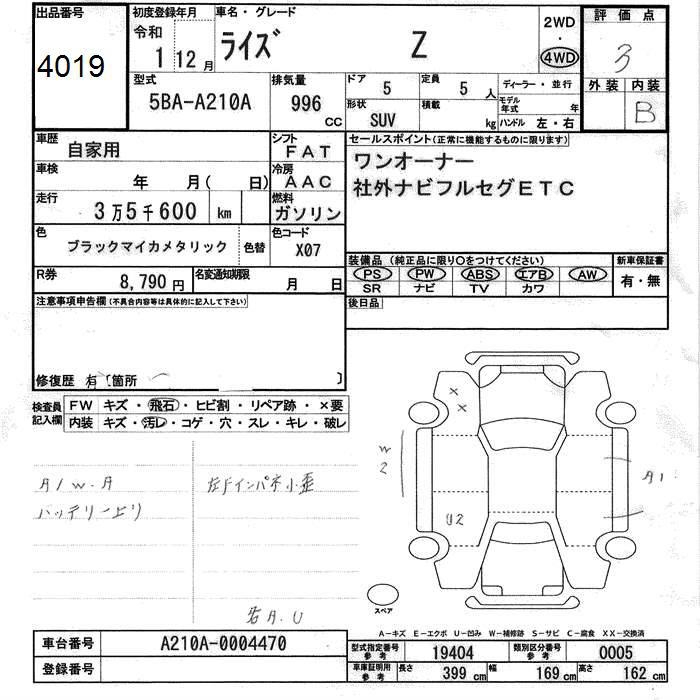 出品番号
4019
初度登録年月
令和
1 12月
車名・グレード
ライズ Z
2WD
・
4WD
評価点
3
外装 内装
B
型式
5BA-A210A
排気量
996 CC
ドア 5
定員 5 人
形状 SUV
積載 kg
ディーラー・並行
モデル年式 年
ハンドル 左・右
車歴 自家用
シフト FAT
車検 年 月( 日)
冷房 AAC
走行 3万5千600 km
燃料 ガソリン
色 ブラックマイカメタリック 色替
色コード X07
R券 8,790円
名変通知期限 月 日
セールスポイント(正常に機能するものに限ります)
ワンオーナー
社外ナビフルセグETC
装備品 (純正品に限り○をつけてください)
新車保証書
PS PW ABS エアB AW
SR ナビ TV カワ
有・無
後日品
注意事項申告欄(不具合内容等は具体的に記入して下さい)
修復歴 有 [箇所 ]
検査員記入欄
FW キズ・飛石・ヒビ割・リペア跡・×要
内装 キズ・汚レ・コゲ・穴・スレ・キレ・破レ
A1 W.A
バッテリー上り
左Fインパネ小歪
右A.U
X
X
W
2
U2
A1
スペア
A-キズ E-エクボ U-凹み W-補修跡 S-サビ C-腐食 XX-交換済
車台番号 A210A-0004470
登録番号
型式指定番号 参考 19404
類別区分番号 参考 0005
車庫証明用 参考 長さ 399 cm 幅 169 cm 高さ 162 cm